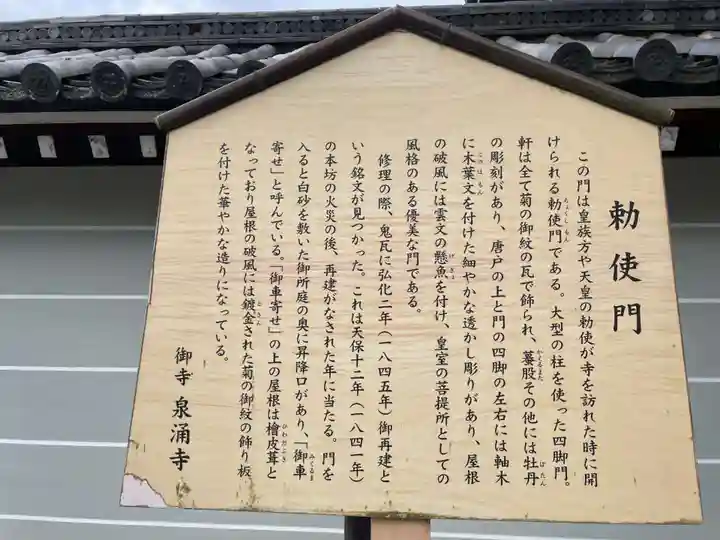 勅使門
この門は皇族方や天皇の勅使が寺を訪れた時に開
けられる勅使門である。大型の柱を使った四脚門。
ちょくしもん
軒は全て菊の御紋の瓦で飾られ、蟇股その他には牡丹
かえるまた
ぼたん
の彫刻があり、唐戸の上と門の四脚の左右には軸木
に木葉文を付けた細やかな透かし彫りがあり、屋根
このはもん
の破風には雲文の懸魚を付け、皇室の菩提所としての
げぎょ
風格のある優美な門である。
修理の際、鬼瓦に弘化二年(一八四五年)御再建と
いう銘文が見つかった。これは天保十二年(一八四一年)
の本坊の火災の後、再建がなされた年に当たる。門を
入ると白砂を敷いた御所庭の奥に昇降口があり、「御車
みくるま
寄せ」と呼んでいる。「御車寄せ」の上の屋根は檜皮葺と
ひわだぶき
なっており屋根の破風には鍍金された菊の御紋の飾り板
ときん
を付けた華やかな造りになっている。
御寺 泉涌寺